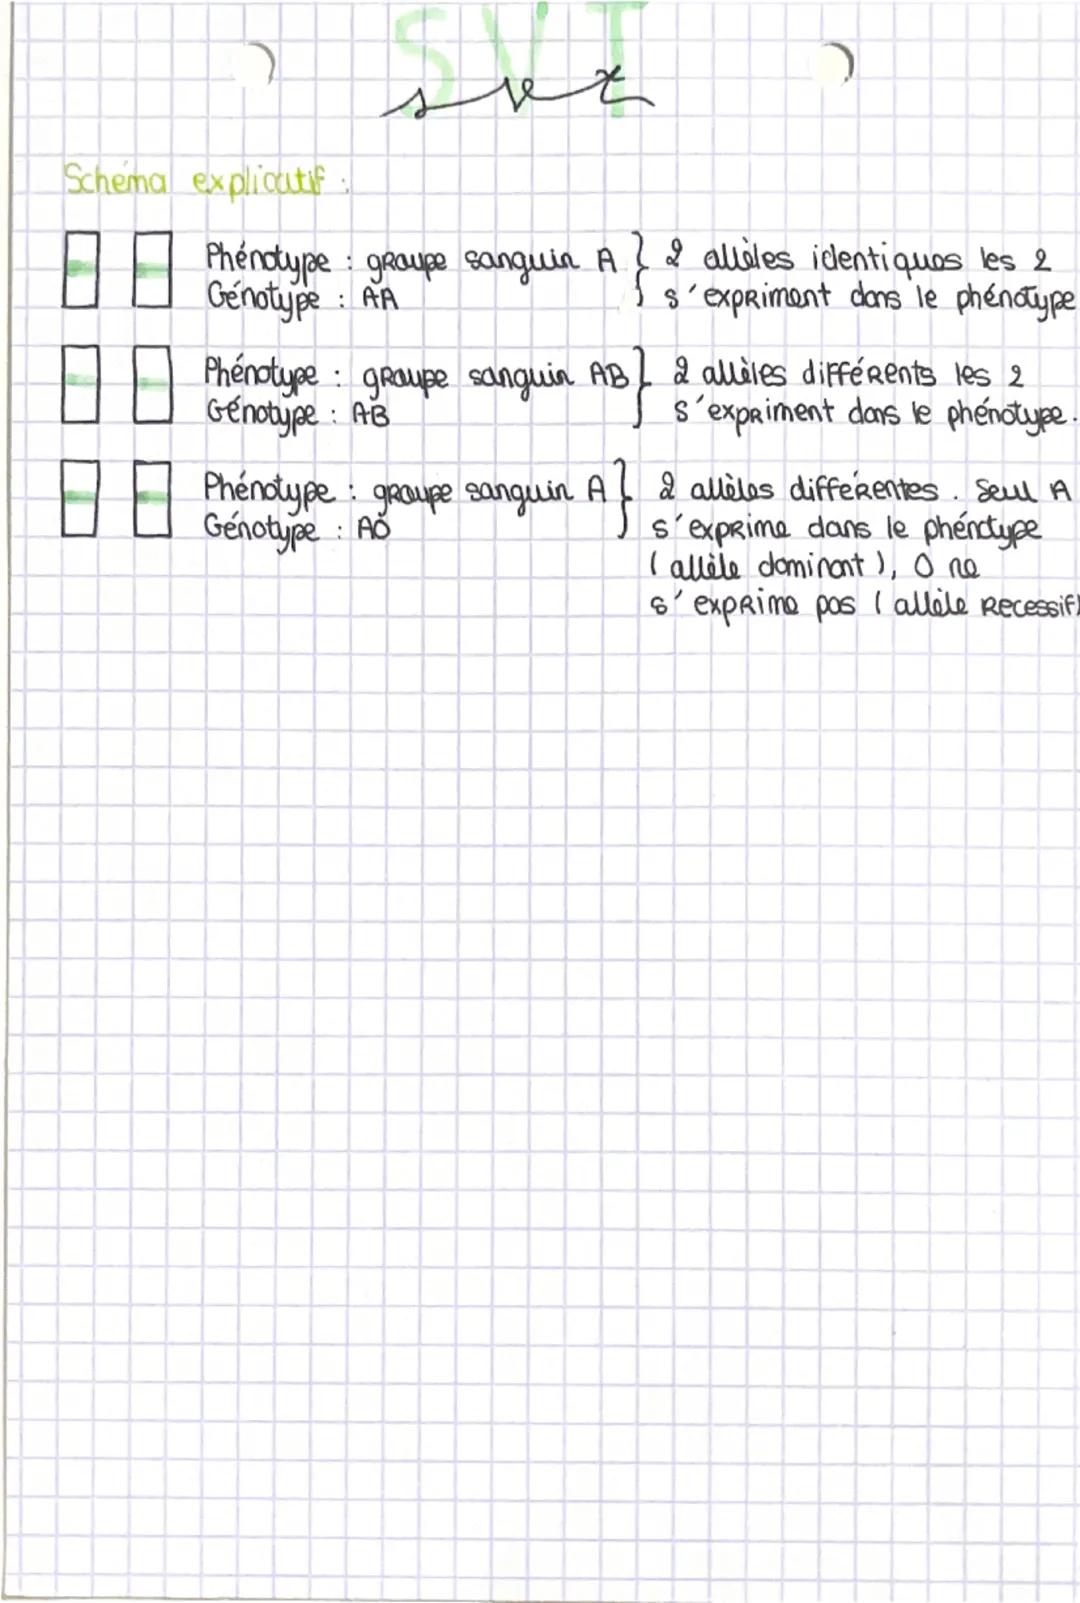 SVT
svt
Schéma explicatif :
Phénotype : groupe sanguin A } 2 allèles identiques les 2
Génotype : AA s'expriment dans le phénotype
Phénotype : groupe sanguin AB } 2 allèles différents les 2
Génotype : AB s'expriment dans le phénotype.
Phénotype : groupe sanguin A } 2 allèles différentes. Seul A
Génotype : AO s'exprime dans le phénotype
(allèle dominant), O ne
s'exprime pas (allèle recessif)